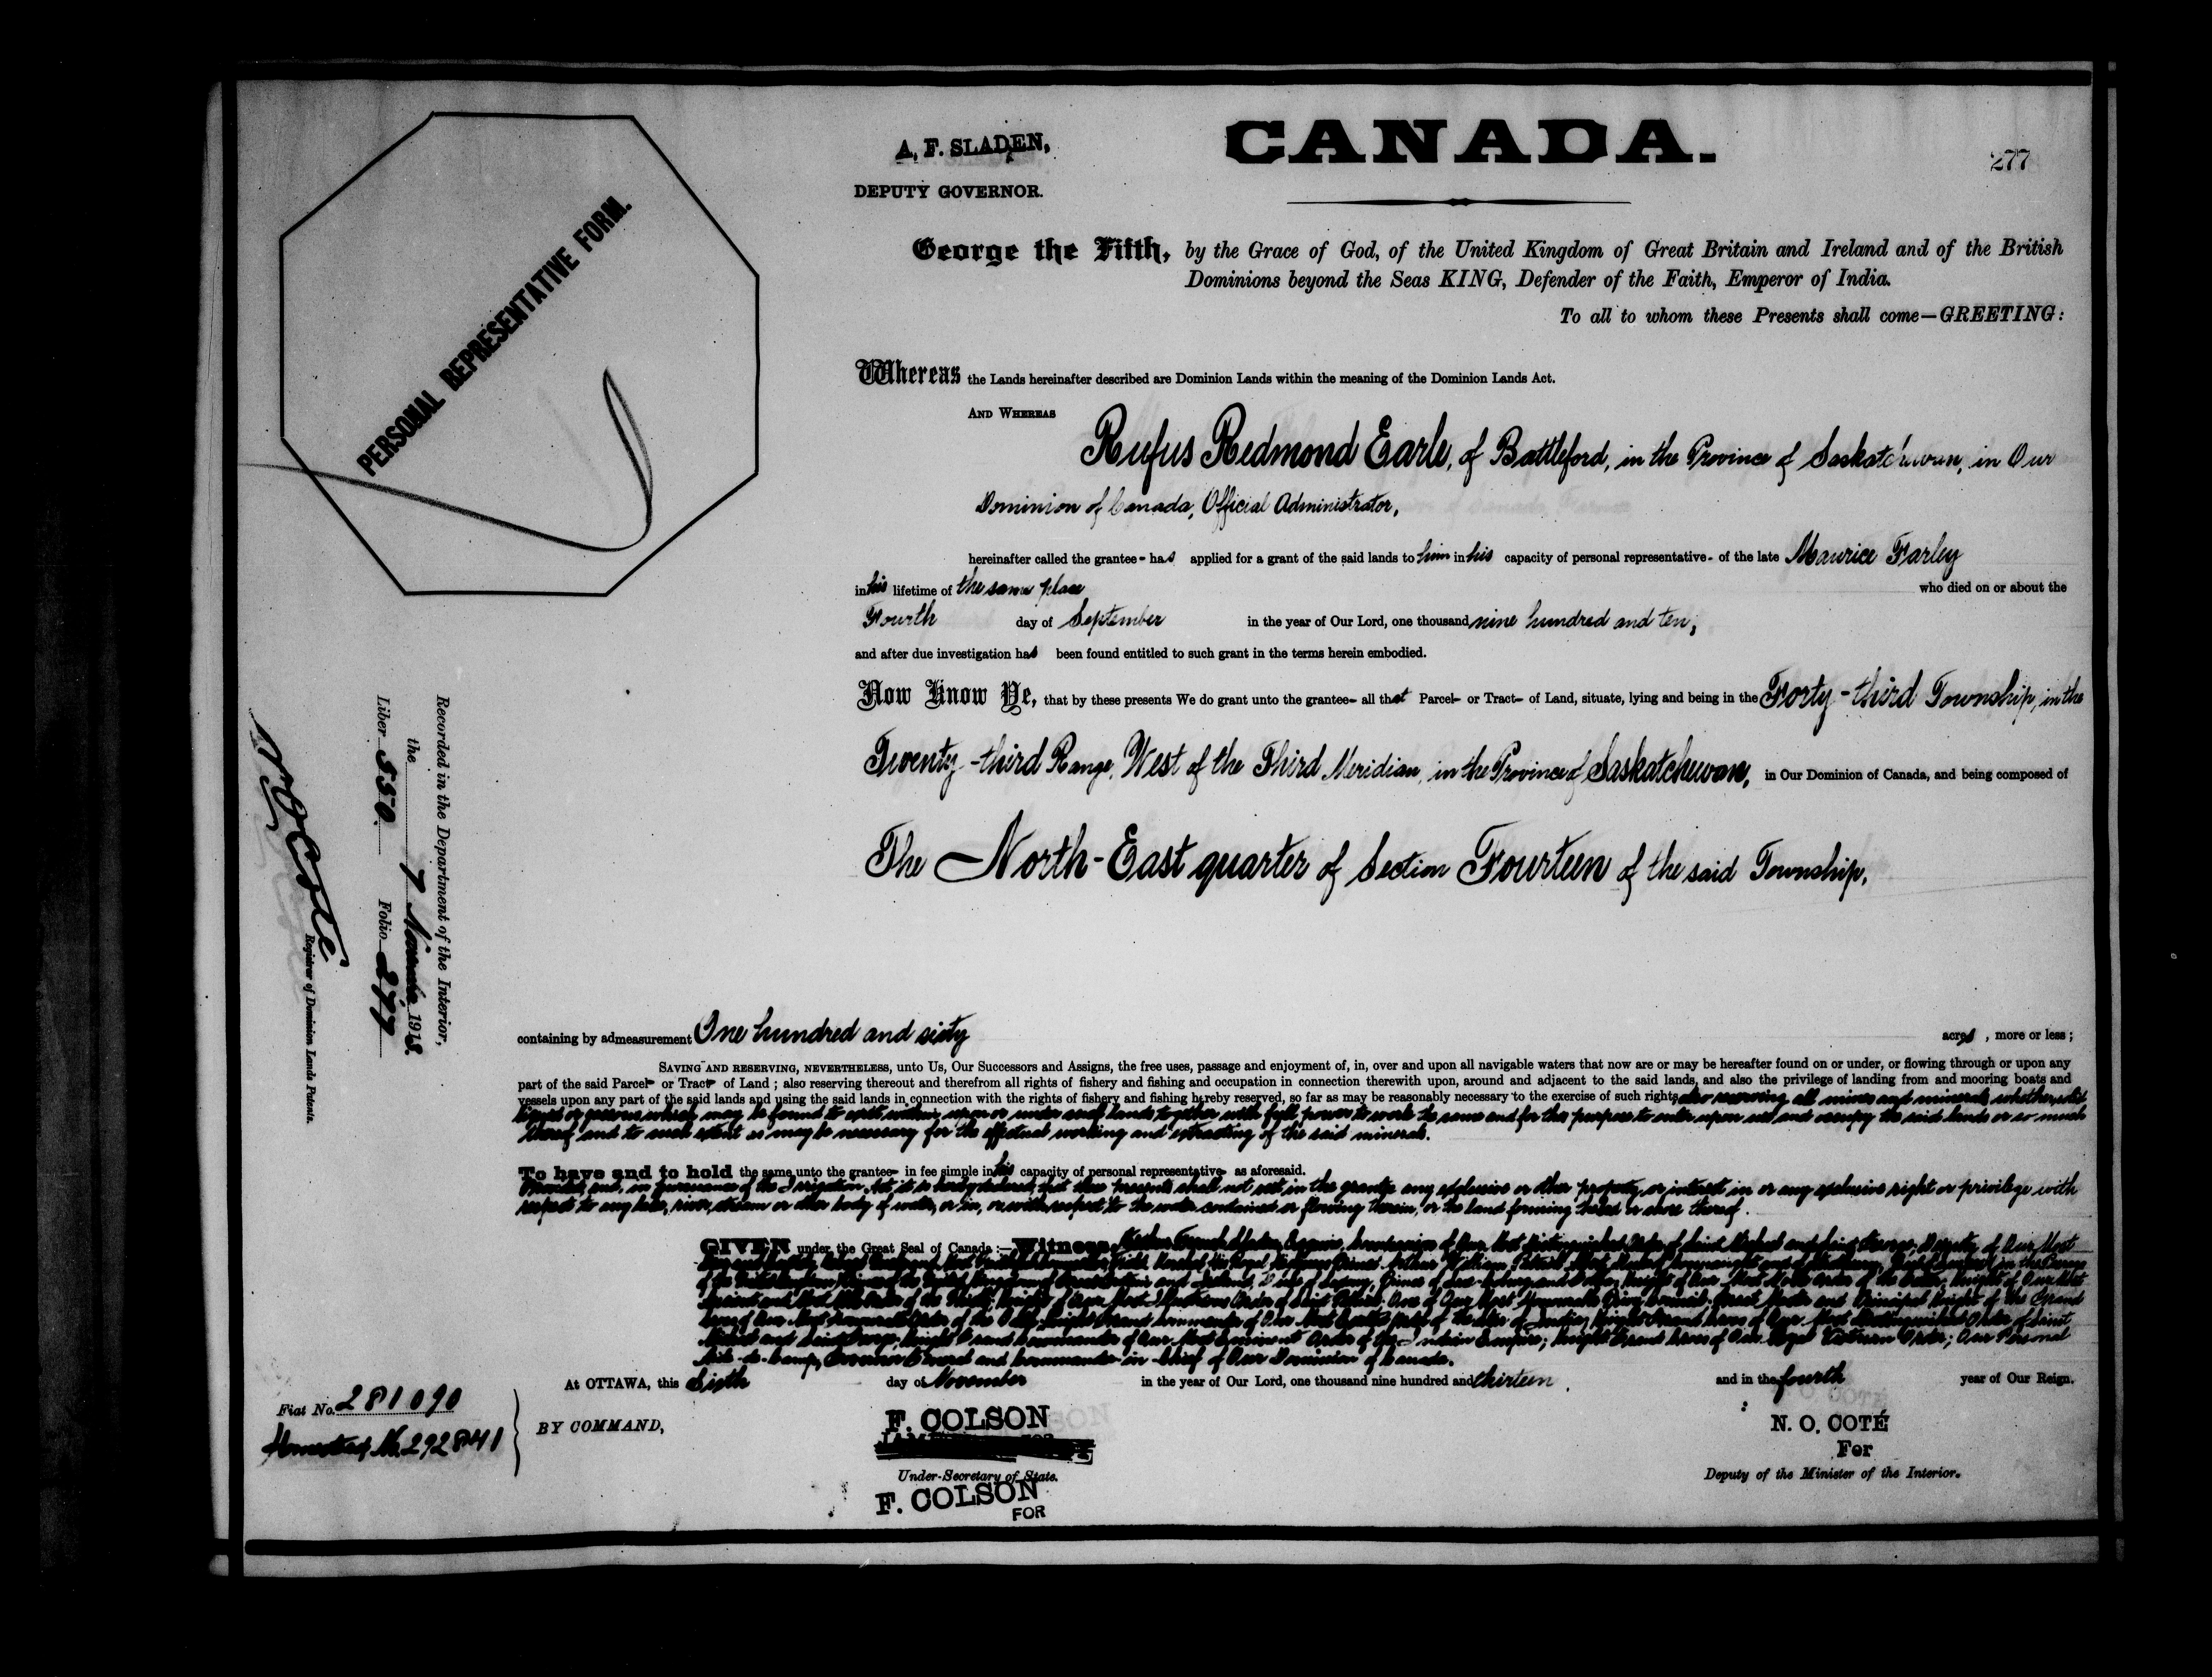 A. F. SLADEN,
DEPUTY GOVERNOR.
CANADA.
277
PERSONAL REPRESENTATIVE FORM.
George the Fifth, by the Grace of God, of the United Kingdom of Great Britain and Ireland and of the British
Dominions beyond the Seas KING, Defender of the Faith, Emperor of India.
To all to whom these Presents shall come—GREETING:
Whereas the Lands hereinafter described are Dominion Lands within the meaning of the Dominion Lands Act.
AND WHEREAS
Rufus Redmond Earle, of Battleford, in the Province of Saskatchewan, in Our
Dominion of Canada, Official Administrator,
hereinafter called the grantee- has applied for a grant of the said lands to him in his capacity of personal representative- of the late Maurice Farley
in his lifetime of the same place who died on or about the
Fourth day of September in the year of Our Lord, one thousand nine hundred and ten,
and after due investigation has been found entitled to such grant in the terms herein embodied.
Now Know Ye, that by these presents We do grant unto the grantee- all that Parcel- or Tract- of Land, situate, lying and being in the Forty-third Township, in the
Twenty-third Range, West of the Third Meridian, in the Province of Saskatchewan, in Our Dominion of Canada, and being composed of
The North-East quarter of Section Fourteen of the said Township,
containing by admeasurement One hundred and sixty acres, more or less;
SAVING AND RESERVING, NEVERTHELESS, unto Us, Our Successors and Assigns, the free uses, passage and enjoyment of, in, over and upon all navigable waters that now are or may be hereafter found on or under, or flowing through or upon any
part of the said Parcel- or Tract- of Land; also reserving thereout and therefrom all rights of fishery and fishing and occupation in connection therewith upon, around and adjacent to the said lands, and also the privilege of landing from and mooring boats and
vessels upon any part of the said lands and using the said lands in connection with the rights of fishery and fishing hereby reserved, so far as may be reasonably necessary to the exercise of such rights, also reserving all mines and minerals whether solid
liquid or gaseous which may be found to exist within upon or under such lands together with full power to work the same and for this purpose to enter upon use and occupy the said lands or so much
thereof and to such extent as may be necessary for the effectual working and extracting of the said minerals.
To have and to hold the same unto the grantee- in fee simple in his capacity of personal representative- as aforesaid.
Provided, and, in pursuance of the Irrigation Act it is hereby declared, that these presents shall not vest in the grantee any exclusive or other property or interest in or any exclusive right or privilege with
respect to any lake, river, stream or other body of water, or in, or with respect to the water contained or flowing therein, or the land forming the bed or shore thereof.
GIVEN under the Great Seal of Canada:—Witness, Arthur French Sladen, Esquire, Companion of Our Most Distinguished Order of Saint Michael and Saint George, Deputy of Our Most
Michael and Saint George, Knight Grand Commander of Our Most Eminent Order of the Indian Empire; Knight Grand Cross of Our Royal Victorian Order; Our Personal
Aide-de-Camp, Governor General and Commander-in-Chief of Our Dominion of Canada.
At OTTAWA, this Sixth day of November in the year of Our Lord, one thousand nine hundred and thirteen, and in the fourth year of Our Reign.
BY COMMAND,
F. COLSON
Under-Secretary of State.
F. COLSON
FOR
N. O. COTÉ
For
Deputy of the Minister of the Interior.
Fiat No. 281090
Homestead No. 292841
Recorded in the Department of the Interior,
the 7 November 1913.
Liber 550 Folio 277
N O Coté
Registrar of Dominion Lands Patents.